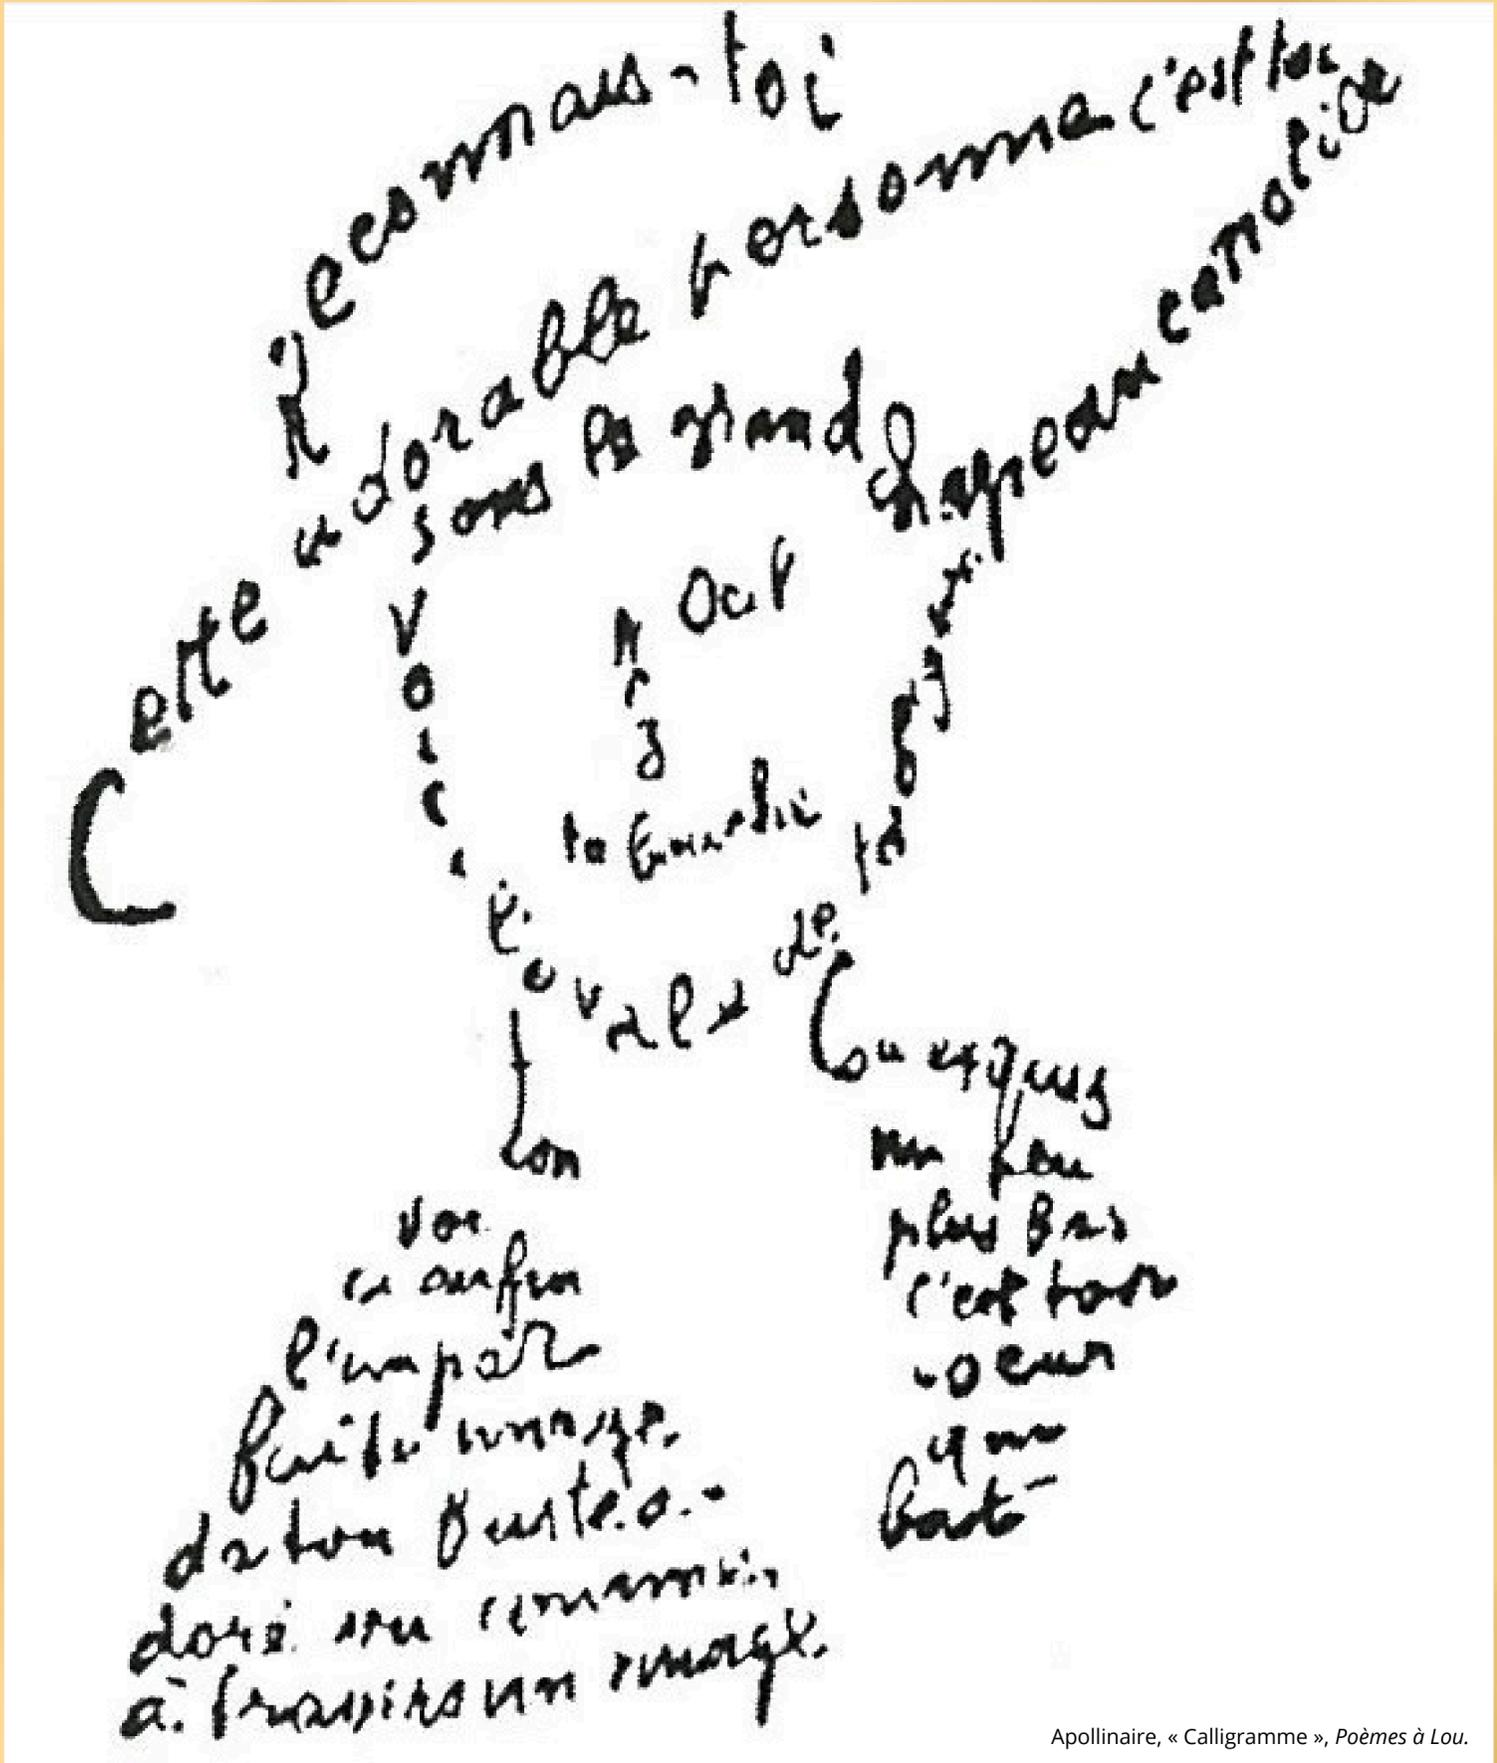 Reconnais-toi
Cette adorable personne c'est toi
sous le grand chapeau canotier
Oeil
Nez
La bouche
Voici l'ovale de ta figure
Ton
Cou exquis
Voi
ci enfin
l'impar
faite image
de ton buste a
doré vu comme
à travers un nuage
un peu
plus bas
c'est ton
coeur
qui
bat
Apollinaire, « Calligramme », Poèmes à Lou.